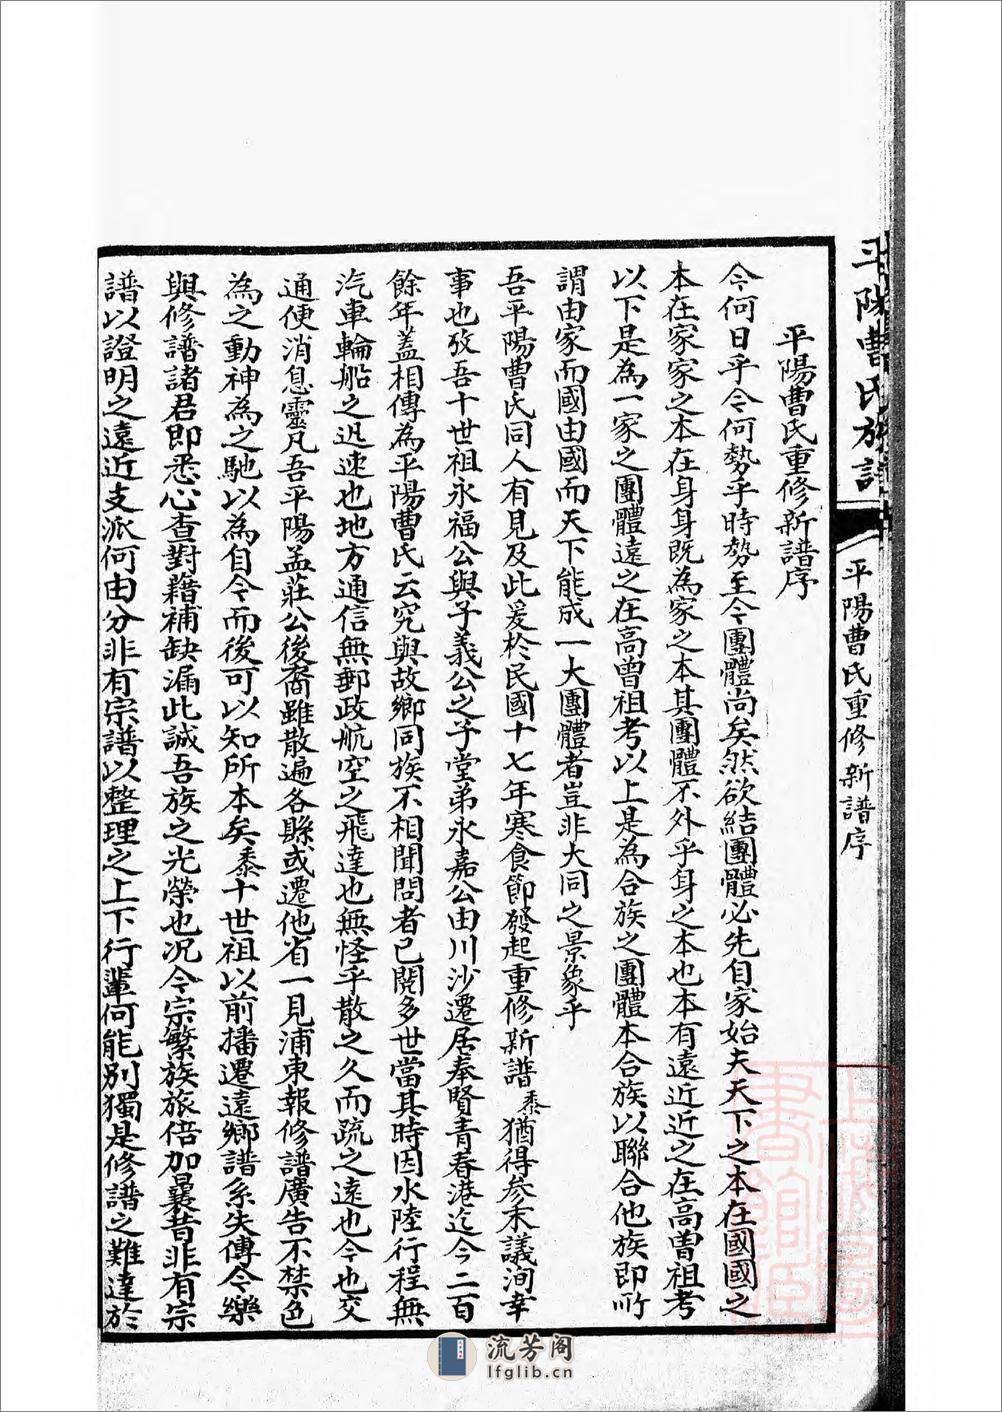 平陽曹氏族譜
平陽曹氏重修新譜序
平陽曹氏重修新譜序
今何日乎今何勢乎時勢至今團體尚矣然欲結團體必先自家始夫天下之本在國國之
本在家家之本在身身既為家之本其團體不外乎身之本也本有遠近近之在高曾祖考
以下是為一家之團體遠之在高曾祖考以上是為合族之團體本合族以聯合他族即所
謂由家而國由國而天下能成一大團體者豈非大同之景象乎
吾平陽曹氏同人有見及此爰於民國十七年寒食節發起重修新譜忝猶得參末議洵幸
事也攷吾十世祖永福公與子義公之子堂弟永嘉公由川沙遷居奉賢青春港迄今二百
餘年蓋相傳為平陽曹氏云究與故鄉同族不相聞問者已閱多世當其時因水陸行程無
汽車輪船之迅速也地方通信無郵政航空之飛達也無怪乎散之久而疏之遠也今也交
通便消息靈凡吾平陽孟莊公後裔雖散遍各縣或遷他省一見浦東報修譜廣告不禁色
為之動神為之馳以為自今而後可以知所本矣忝十世祖以前播遷遠鄉譜系失傳今樂
與修譜諸君即悉心查對藉補缺漏此誠吾族之光榮也况今宗繁族旅倍加曩昔非有宗
譜以證明之遠近支派何由分非有宗譜以整理之上下行輩何能別獨是修譜之難達於
上海圖書館藏
流芳阁
lfglib.cn